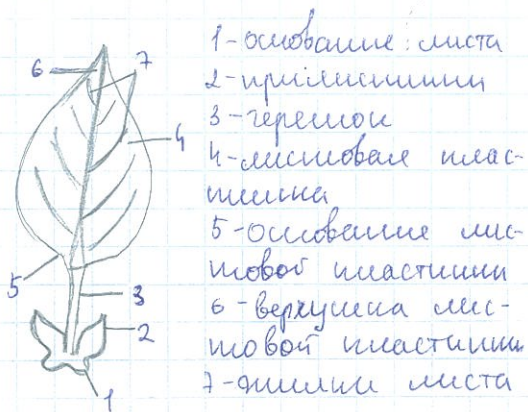 1-основание листа
2-прилистники
3-черешок
4-листовая плас-
тинка
5-основание лис-
товой пластинки
6-верхушка лис-
товой пластинки
7-жилки листа
6
7
4
5
3
2
1